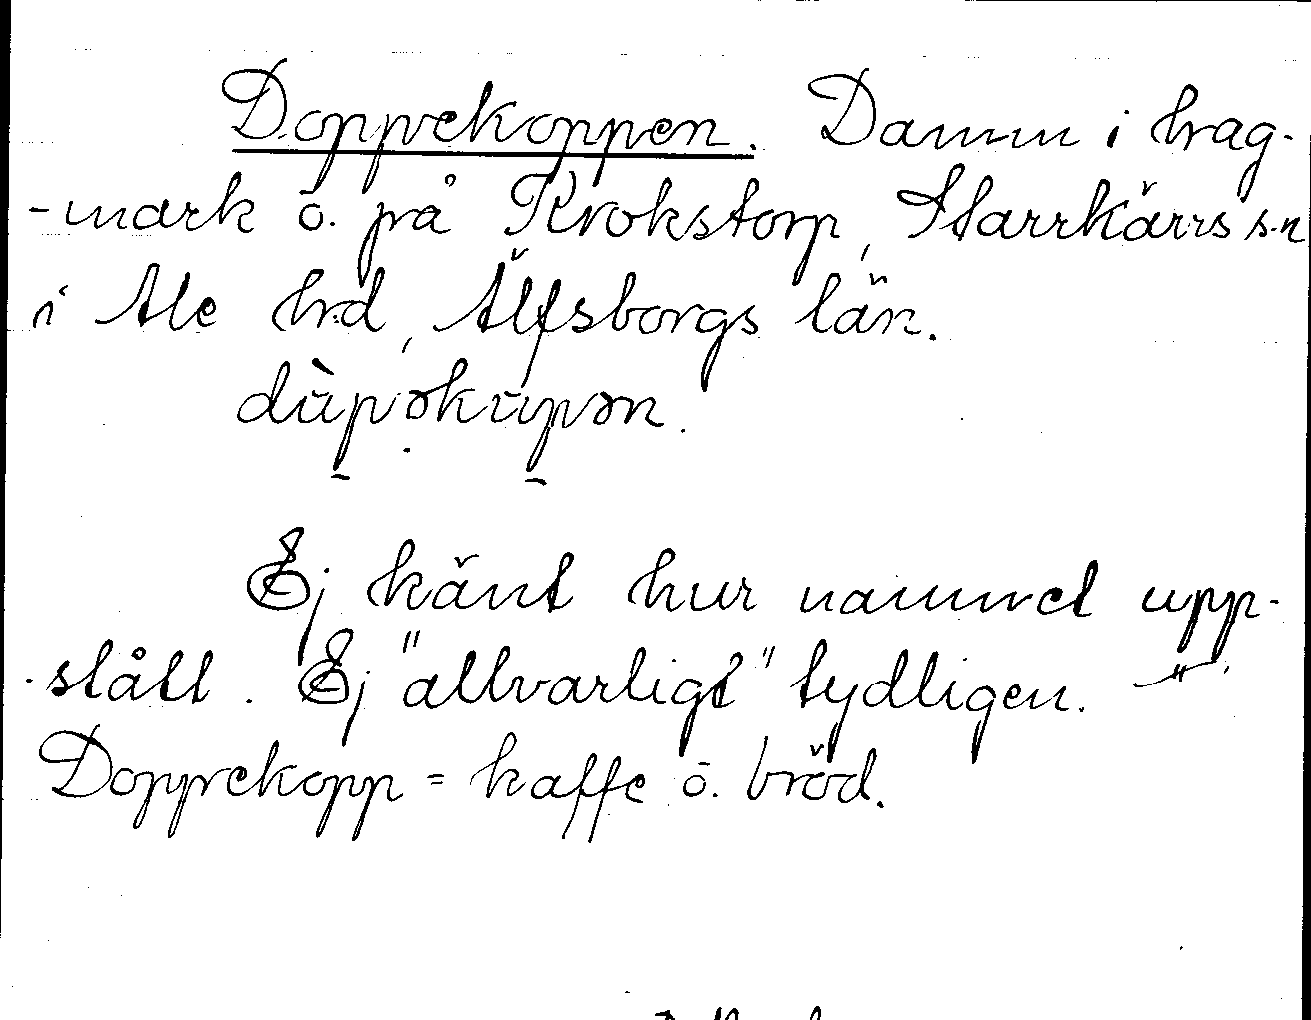 Doppekoppen. Damm i hag-
-mark ö. på Krokstorp, Starrkärrs s.n
i Ale hd, Älfsborgs län.
dùpəkupən.
Ej känt hur namnet upp-
-stått. Ej "allvarligt" tydligen.
Doppekopp = kaffe o. bröd.